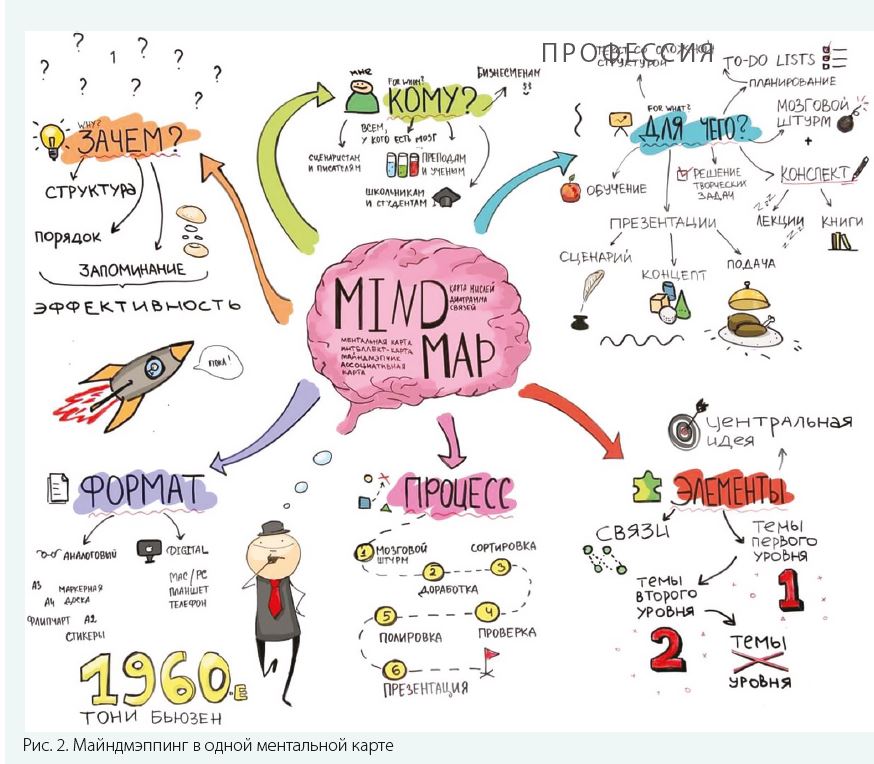 ПРОФЕССИЯ
? ? 1 ? ? ? ? ?
WHY?
ЗАЧЕМ?
СТРУКТУРА
ПОРЯДОК
ЗАПОМИНАНИЕ
ЭФФЕКТИВНОСТЬ
ПОКА!
МНЕ
FOR WHOM?
КОМУ?
БИЗНЕСМЕНАМ
$$
ВСЕМ,
У КОГО ЕСТЬ МОЗГ
СЦЕНАРИСТАМ
И ПИСАТЕЛЯМ
ПРЕПОДАМ
И УЧЕНЫМ
ШКОЛЬНИКАМ
И СТУДЕНТАМ
ТЕКСТ СО СЛОЖНОЙ
СТРУКТУРОЙ
TO-DO LISTS
ПЛАНИРОВАНИЕ
FOR WHAT?
ДЛЯ ЧЕГО?
МОЗГОВОЙ
ШТУРМ
+
КОНСПЕКТ
ОБУЧЕНИЕ
РЕШЕНИЕ
ТВОРЧЕСКИХ
ЗАДАЧ
ZZZ
ЛЕКЦИИ
КНИГИ
ПРЕЗЕНТАЦИИ
СЦЕНАРИЙ
КОНЦЕПТ
ПОДАЧА
MIND
MAP
КАРТА МЫСЛЕЙ
ДИАГРАММА
СВЯЗЕЙ
МЕНТАЛЬНАЯ КАРТА
ИНТЕЛЛЕКТ-КАРТА
МАЙНДМЭПЧИК
АССОЦИАТИВНАЯ
КАРТА
ФОРМАТ
АНАЛОГОВЫЙ
DIGITAL
А3
МАРКЕРНАЯ
ДОСКА
А4
ФЛИПЧАРТ
А2
СТИКЕРЫ
MAC/PC
ПЛАНШЕТ
ТЕЛЕФОН
1960-Е
ТОНИ БЬЮЗЕН
ПРОЦЕСС
1 МОЗГОВОЙ
ШТУРМ
2
ДОРАБОТКА
СОРТИРОВКА
3
4
ПРОВЕРКА
5
ПОЛИРОВКА
6
ПРЕЗЕНТАЦИЯ
ЦЕНТРАЛЬНАЯ
ИДЕЯ
ЭЛЕМЕНТЫ
СВЯЗИ
ТЕМЫ
ПЕРВОГО
УРОВНЯ
1
ТЕМЫ
ВТОРОГО
УРОВНЯ
2
ТЕМЫ
X
УРОВНЯ
Рис. 2. Майндмэппинг в одной ментальной карте